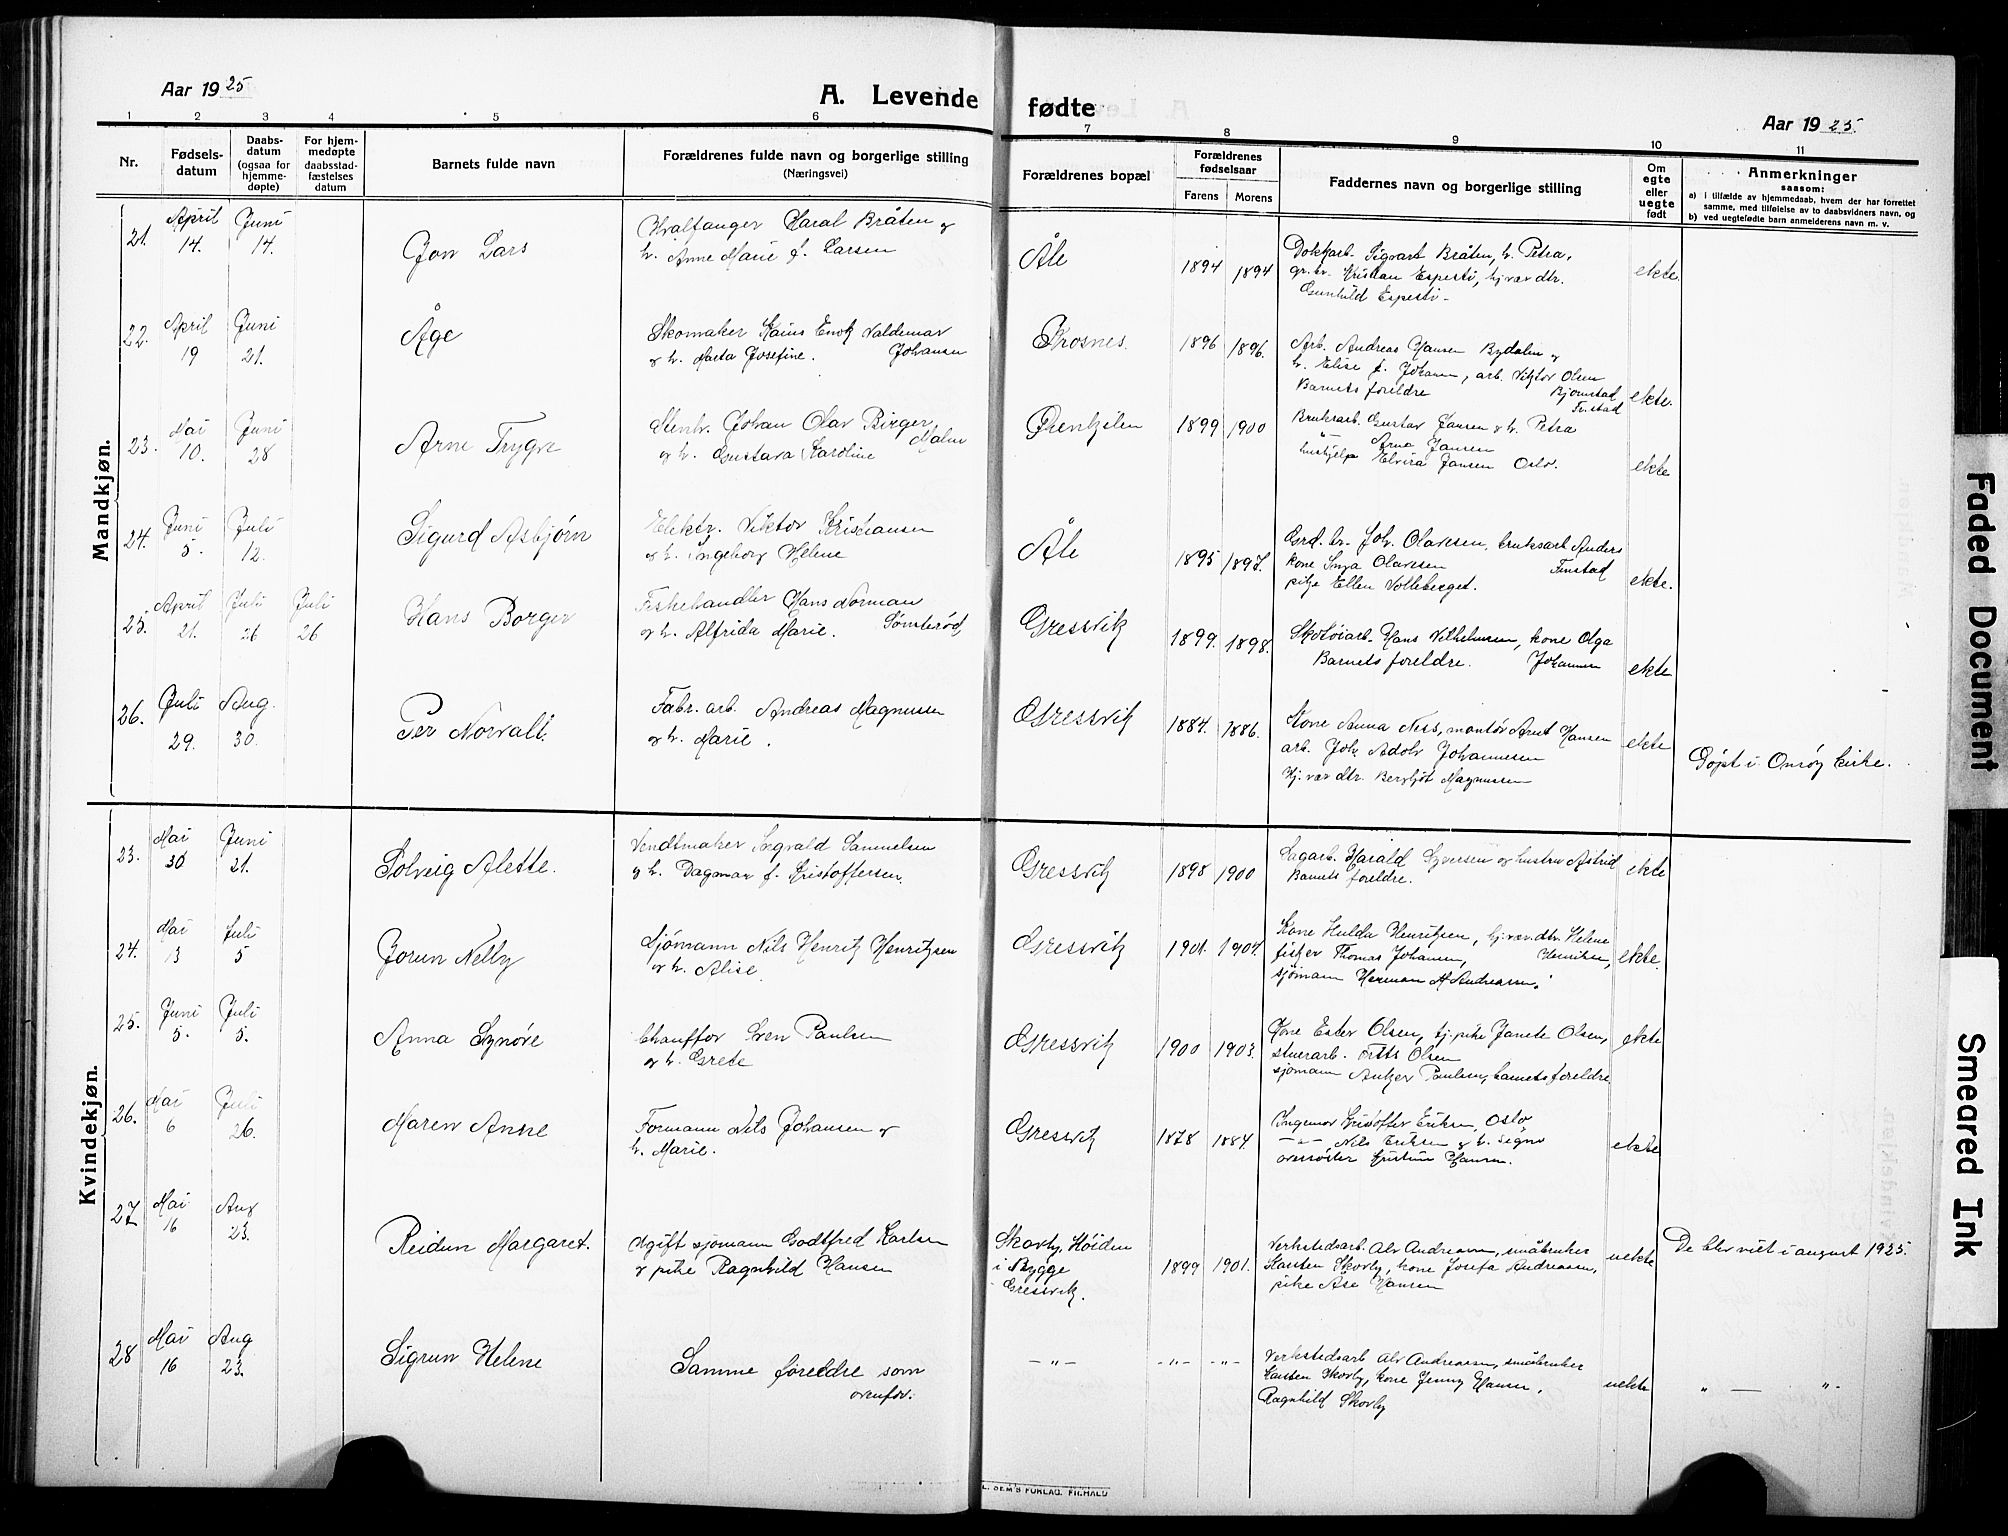 Aar 1925
A. Levende
fødte
Aar 1925.
1 2 3 4 5 6 7 8 9 10 11
Nr.
Fødsels-
datum
Daabs-
datum
(ogsaa for
hjemme-
døpte)
For hjem-
medøpte
daabsstad-
fæstelses
datum
Barnets fulde navn
Forældrenes fulde navn og borgerlige stilling
(Næringsvei)
Forældrenes bopæl
Forældrenes
fødselsaar
Farens Morens
Faddernes navn og borgerlige stilling
Om
egte
eller
uegte
født
Anmerkninger
saasom:
a) i tilfælde av hjemmedaab, hvem der har forrettet
samme, med tilføielse av to daabsvidners navn, og
b) ved uegtefødte barn anmelderens navn m. v.
Mandkjøn.
21. April 14. Juni 14. Jon Lars
Hvalfanger Haral Bråten og
h. Anne Marie f. Larsen
Åle 1894 1894
Dokkarb. Sigvart Bråten, h. Petra,
gr.br. Kristian Espesti, hj.vær. dtr.
Gunhild Espesti
ekte.
22. April 19 Juni 21. Åge
Skomaker Enok Valdemar
og h. Marta Josefine. Johansen
Krosnes. 1896 1896.
Arb. Andreas Hansen Rydalen og
h. Elise f. Johansen, arb. Viktor Olsen
Barnets foreldre Bjørnstad
ekte.
23. Mai 10. Juni 28 Arne Trygve
Stenh. Johan Olav Birger
og h. Gustava Karoline Malm
Ørenkilen 1899 1900
Bruksarb. Gustav Jansen og h. Petra
Arne Jansen
hushjelp Elvira Jansen Oslo.
ekte
24. Juni 5. Juli 12. Sigurd Asbjørn
Elektr. Viktor Kristiansen
og h. Ingeborg Helene
Åle 1895 1897.
Grd. br. Joh. Olavesen, bruksarb Anders
kone Inga Olavesen Finstad
pike Ellen Volleberget.
ekte.
25. April 21. Juli 26 Juli 26 Hans Borger
Fiskehandler Hans Norman
og h. Alfrida Marie. Sømterød,
Gressvik 1899. 1898.
Skotøiarb. Hans Vilhelmsen, kone Olga
Barnets foreldre. Johannesen
ekte
26. Juli 29. Aug. 30. Per Norvalt.
Fabr. arb. Andreas Magnussen
og h. Marie.
Gressvik 1884. 1886.
Kone Anna Nies, montør Arnt Hansen
arb. Joh. Adolv Johannesen
Hj. vær dtr. Bergljot Magnussen
ekte
Døpt i Onsøy kirke.
Kvindekjøn.
23. Mai 30 Juni 21. Solveig Alette.
Vendtmaker Sigvald Samuelsen
og h. Dagmar f. Kristoffersen.
Gressvik 1898 1900
Sagarb. Harald Syversen og hustru Astrid
Barnets foreldre.
ekte
24. Mai 13 Juli 5 Jorun Nelly
Sjømann Nils Henrik Henriksen
og h. Alise.
Gressvik 1901. 1904.
Kone Hulda Henriksen, hj.vær.dtr. Helene
fisker Thomas Johansen, Henriksen,
sjømann Herman M Andreassen.
ekte.
25. Juni 5. Juli 5. Anna Synøve
Chauffør Sven Paulsen
og h. Grete
Gressvik 1900 1903.
Kone Ester Olsen, tj.pike Janete Olsen,
stuerarb. Fritts Olsen
sjømann Anker Paulsen, barnets foreldre
ekte
26. Mai 6 Juli 26. Maren Anne
Formann Nils Johansen og
h. Marie.
Gressvik 1878 1884.
Ingeniør Kristoffer Eriksen, Oslo
—"— Nils Eriksen og h. Signe
oversøster Kristine Hansen.
ekte
27 Mai 16 Aug 23. Reidun Margaret.
Ugift sjømann Godtfred Karlsen
og pike Ragnhild Hansen
Skovby, Høiden
i Rygge
Gressvik. 1899 1901.
Verkstedsarb. Alv Andreassen, småbruker
Karsten Skovby, kone Josefa Andreassen,
pike Ase Hansen
uekte
De blev viet i august 1925.
28 Mai 16 Aug 23. Sigrun Helene
Samme foreldre som
ovenfor.
—"— —"— —"—
Verkstedsarb Alv Andreassen, småbruker
Karsten Skovby, kone Jenny Hansen,
Ragnhild Skovby
uekte
" — "
SEM'S FORLAG. FR.HALD
Faded Document
Smeared Ink